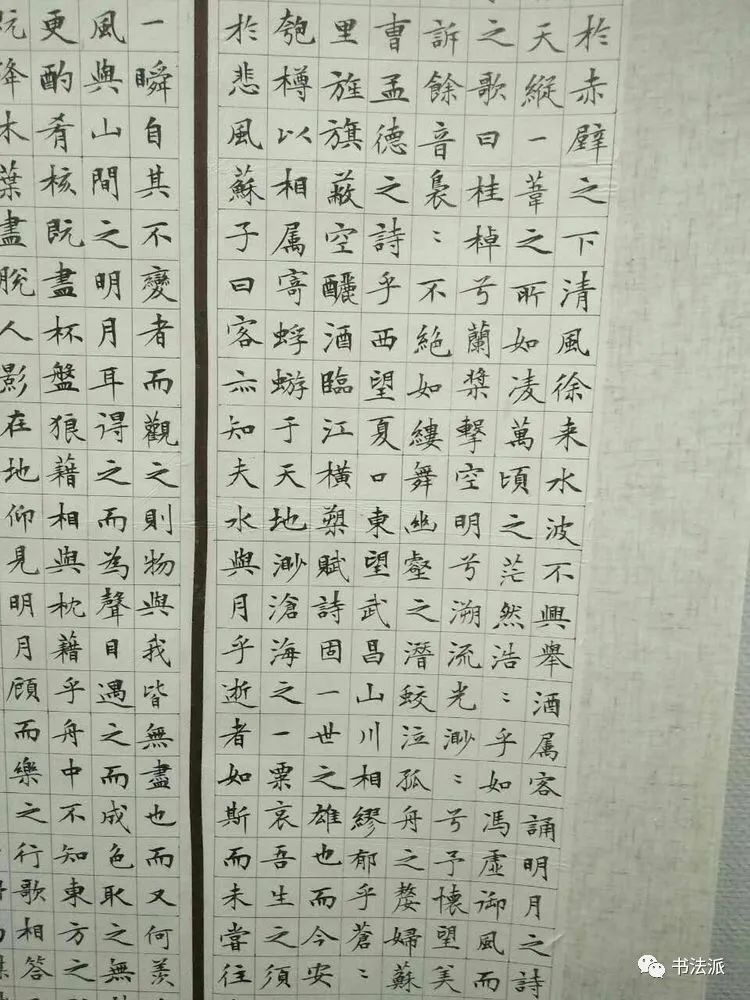 於赤壁之下清風徐来水波不興舉酒属客誦明月之詩
天縱一葦之所如凌萬頃之茫然浩〻乎如馮虛御風而
之歌曰桂棹兮蘭槳擊空明兮溯流光渺〻兮予懷望美
訴餘音裊〻不絕如縷舞幽壑之潛蛟泣孤舟之嫠婦蘇
曹孟德之詩乎西望夏口東望武昌山川相繆郁乎蒼〻
里旌旗蔽空釃酒臨江橫槊賦詩固一世之雄也而今安
匏樽以相属寄蜉蝣于天地渺滄海之一粟哀吾生之須
於悲風蘇子曰客亦知夫水與月乎逝者如斯而未嘗往
一瞬自其不變者而觀之則物與我皆無盡也而又何羨
風與山間之明月耳得之而為聲目遇之而成色取之無
更酌肴核既盡杯盤狼藉相與枕藉乎舟中不知東方之
既降木葉盡脫人影在地仰見明月顧而樂之行歌相答
书法派